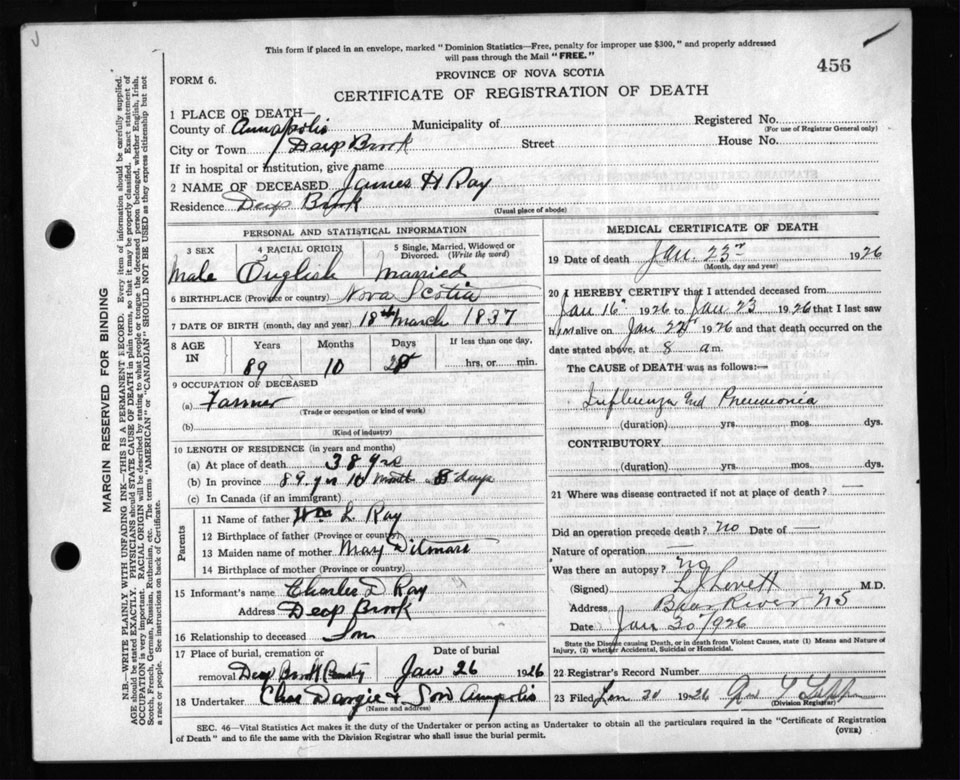 This form if placed in an envelope, marked "Dominion Statistics—Free, penalty for improper use $300," and properly addressed
will pass through the Mail "FREE."
456
PROVINCE OF NOVA SCOTIA
FORM 6.
CERTIFICATE OF REGISTRATION OF DEATH
1 PLACE OF DEATH—
County of Annapolis Municipality of Registered No.
(For use of Registrar General only)
City or Town Deep Brook Street House No.
If in hospital or institution, give name
2 NAME OF DECEASED James H Ray
Residence Deep Brook
(Usual place of abode)
PERSONAL AND STATISTICAL INFORMATION
3 SEX 4 RACIAL ORIGIN 5 Single, Married, Widowed or Divorced. (Write the word)
Male English Married
6 BIRTHPLACE (Province or country) Nova Scotia
7 DATE OF BIRTH (month, day and year) 18th March 1837
8 AGE IN Years Months Days If less than one day,
89 10 hrs. or min.
9 OCCUPATION OF DECEASED
(a) Farmer
(Trade or occupation or kind of work)
(b)
(Kind of industry)
10 LENGTH OF RESIDENCE (in years and months)
(a) At place of death 38 yrs
(b) In province 89 yrs 10 month 8 days
(c) In Canada (if an immigrant)
Parents
11 Name of father Wm L. Ray
12 Birthplace of father (Province or country)
13 Maiden name of mother May Ditmars
14 Birthplace of mother (Province or country)
15 Informant's name Charles D Ray
Address Deep Brook
16 Relationship to deceased Son
17 Place of burial, cremation or removal Date of burial
Deep Brook Jan 26 1926
18 Undertaker Chas Dargie & Son Annapolis
(Name and address)
MEDICAL CERTIFICATE OF DEATH
19 Date of death Jan. 23rd 1926
(Month, day and year)
20 I HEREBY CERTIFY that I attended deceased from
Jan 16" 1926 to Jan 23 1926 that I last saw
him alive on Jan 22nd 1926 and that death occurred on the
date stated above, at 8 am.
The CAUSE of DEATH was as follows:—
Influenza and Pneumonia
(duration) yrs. mos. dys.
CONTRIBUTORY
(duration) yrs. mos. dys.
21 Where was disease contracted if not at place of death? —
Did an operation precede death? no Date of —
Nature of operation —
Was there an autopsy? no
(Signed) L J Lovett M.D.
Address Bear River NS
Date Jan 30/1926
State the Disease causing Death, or in death from Violent Causes, state (1) Means and Nature of
Injury, (2) whether Accidental, Suicidal or Homicidal.
22 Registrar's Record Number
23 Filed Jan 30 1926
(Division Registrar)
SEC. 46—Vital Statistics Act makes it the duty of the Undertaker or person acting as Undertaker to obtain all the particulars required in the "Certificate of Registration
of Death" and to file the same with the Division Registrar who shall issue the burial permit.
(OVER)
MARGIN RESERVED FOR BINDING
N.B.—WRITE PLAINLY WITH UNFADING INK—THIS IS A PERMANENT RECORD. Every item of information should be carefully supplied.
AGE should be stated EXACTLY. PHYSICIANS should STATE CAUSE OF DEATH in plain terms, so that it may be properly classified. Exact statement of
OCCUPATION is very important. RACIAL ORIGIN will be described by stating to what people or tongue the deceased person belonged, whether English, Irish,
Scotch, French, German, Russian, Ruthenian, etc. The terms "AMERICAN" or "CANADIAN" SHOULD NOT BE USED as they express citizenship but not
a race or people. See instructions on back of Certificate.